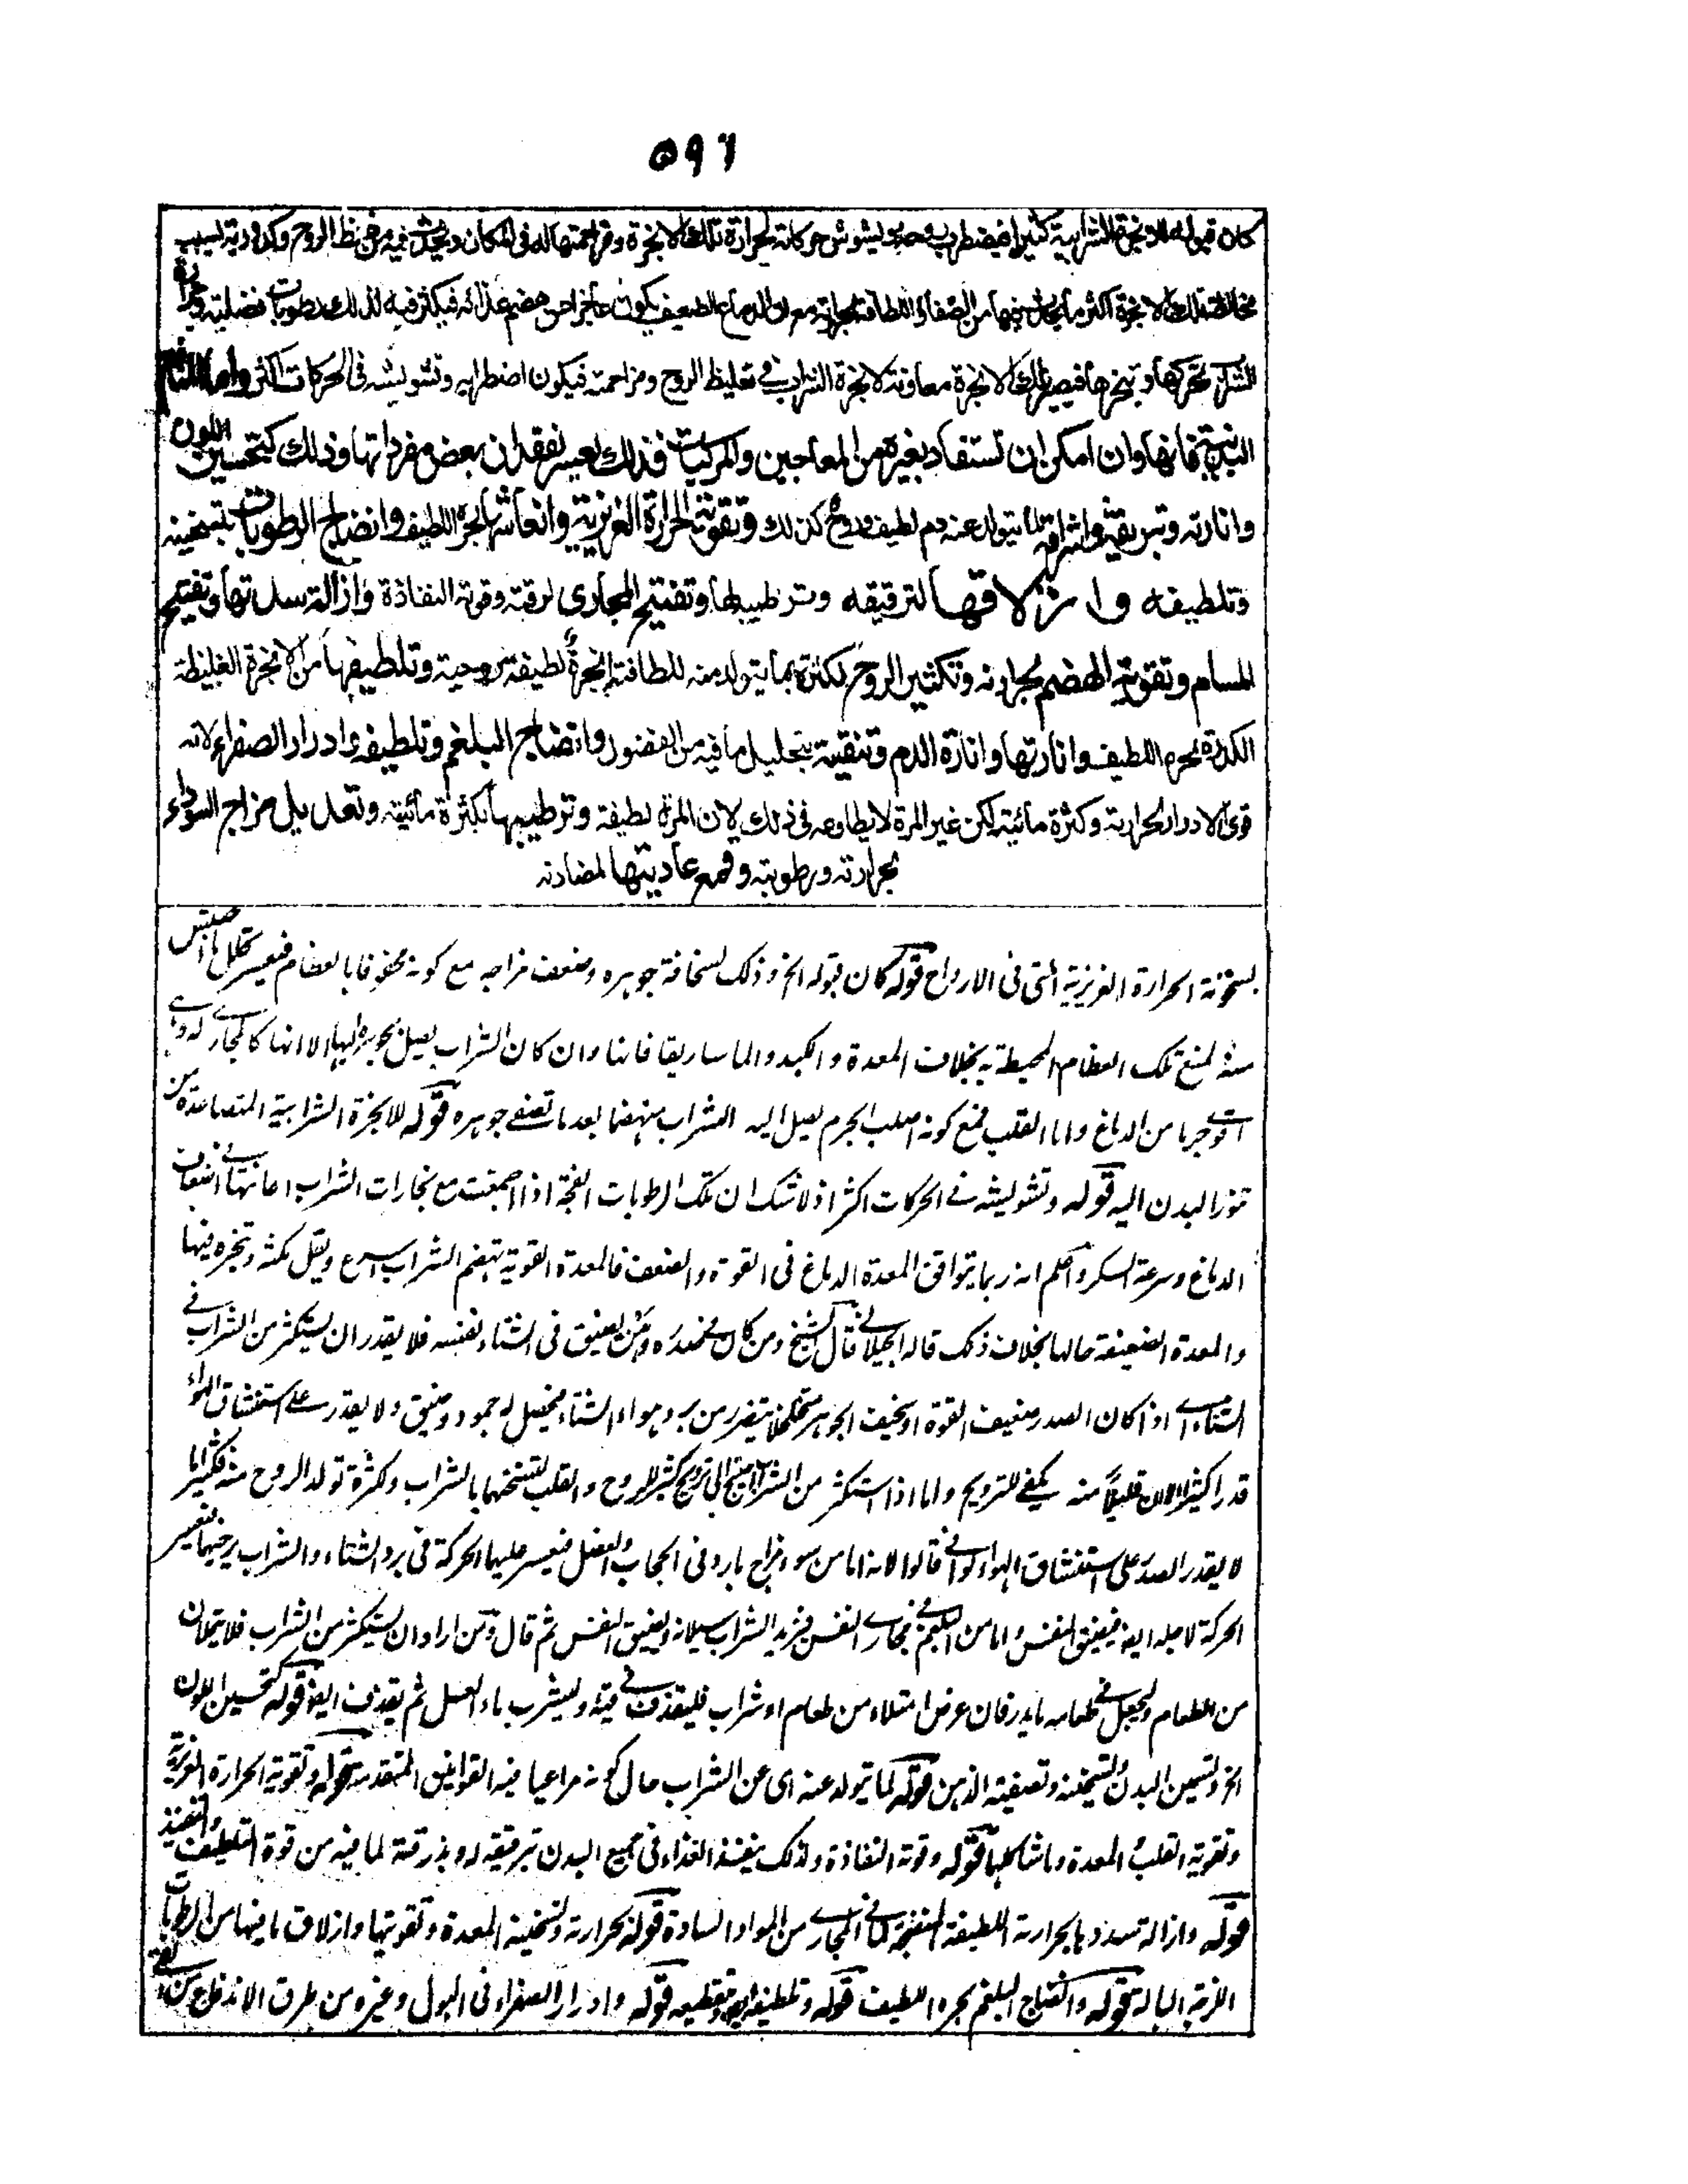 ٥٩٦
كان قبوله للابخرة الشرابية كثيرا فيضطرب روحه ويشوش حركاته لحرارة تلك الابخرة ومزاحمتها له فى المكان ويحدث فيه من غلظ الروح وكدورته بسبب
مخالطة تلك الابخرة اكثر مما يحدث فيها من الصفاء واللطافة لحرارته مع ان الدماغ الضعيف يكون عاجزا عن هضم غذائه فيكثر فيه لذلك رطوبات فضلية وحرارة
الشراب تحركها وتبخرها فيصير تلك الابخرة معاونة لابخرة الشراب فى تغليظ الروح ومزاحمته فيكون اضطرابه وتشويشه فى الحركات اكثر واما المنافع
البدنية فانها وان امكن ان تستفاد بغيره من المعاجين والمركبات فذلك يعسر لفقدان بعض مفرداتها وذلك كتحسين اللون
وانارته وتبريقه واشراقه لما يتولد عنه دم لطيف وروح كذلك وتقوية الحرارة الغريزية وانعاشها بحره اللطيف وانضاج الرطوبات بتسخينه
وتلطيفه وازلاقها لترقيقه وترطيبها وتفتيح المجارى لرقته وقوته النفاذة وازالة سددتها وتفتيح
المسام وتقوية الهضم بحرارته وتكثير الروح لكثرة بما يتولد منه للطافته ابخرة لطيفة روحية وتلطيفها من الابخرة الغليظة
الكدرة بحره اللطيف وانارتها وانارة الدم وتنقيته بتحليل ما فيه من الفضول وانضاج البلغم وتلطيفه وادرار الصفراء لانه
قوى الادرار لحرارته وكثرة مائيته لكن غير المرة لا يطاوعه فى ذلك لان المرة لطيفة وترطيبها بكثرة مائيته وتعديل مزاج السوداء
بحرارته ورطوبته وقمع عاديتها لمضادته
بسخونة الحرارة الغريزية التى فى الارواح قوله كان قبوله الخ وذلك لسخافة جوهره وضعف مزاجه مع كونه محفوفا بالعظام فيعسر تحلل ما احتبس
منه لمنع تلك العظام المحيطة به بخلاف المعدة والكبد والماساريقا فانها وان كان الشراب يصل بجوهره اليها الا انها كالمجارى له وهى
اقوى جرما من الدماغ واما القلب فمع كونه اصلب الجرم يصل اليه الشراب منهضما بعد ما تصفى جوهره قوله للابخرة الشرابية المتصاعدة من
تنور البدن اليه قوله وتشويشه فى الحركات اكثر اذ لا شك ان تلك الرطوبات الفجة اذا اجتمعت مع بخارات الشراب اعانتها فى اضعاف
الدماغ وسرعة السكر واعلم انه ربما يتوافق المعدة الدماغ فى القوة والضعف فالمعدة القوية تهضم الشراب اسرع ويقل مكثه وتبخره فيها
والمعدة الضعيفة حالها بخلاف ذلك قاله الجيلانى قال الشيخ ومن كان صدره يضيق فى الشتاء نفسه فلا يقدر ان يستكثر من الشراب فى
الشتاء اى اذا كان الصدر ضعيف القوة او سخيف الجوهر متخلخلا يتضرر من برد هواء الشتاء فيحصل له جمود وضيق ولا يقدر على استنشاق الهواء
قدرا كثيرا لان قليلا منه يكفى للترويح واما اذا استكثر من الشراب احتيج الى ترويح كثير للروح والقلب لتسخنهما بالشراب وكثرة تولد الروح منه
لا يقدر الصدر على استنشاق الهواء قالوا لانه اما من سوء مزاج بارد فى الحجاب والعضل فيعسر عليها الحركة فى برد الشتاء والشراب يرخيها فتعسر
الحركة لاجله ايضا فيضيق النفس واما من البلغم فى مجارى النفس فيزيد الشراب سيلانه ويضيق النفس ثم قال ومن اراد ان يستكثر من الشراب فلا يتملأن
من الطعام وليجعل فى طعامه ما يدر فان عرض امتلاء من طعام او شراب فليقذف فيئه وليشرب ماء العسل ثم يقذف ايضا قوله كتحسين اللون
الخ وتسمين البدن وتسخينه وتصفية الذهن قوله لما يتولد عنه اى عن الشراب حال كونه مراعيا فيه القوانين المتقدمة قوله وتقوية الحرارة الغريزية
وتقوية القلب والمعدة وما شاكلها قوله وقوته النفاذة ولذلك ينفذ الغذاء فى جميع البدن بترقيقه له وبذرقته لما فيه من قوة التلطيف والتنفيذ
قوله وازالة سددها بحرارته اللطيفة المنفتحة لما فى المجارى من المواد السادة قوله بحرارته وتسخينه المعدة وتقويتها وازلاق ما فيها من الرطوبات
اللزجة البالة قوله وانضاج البلغم بحره اللطيف قوله وتلطيفه اى وتقطيعه قوله وادرار الصفراء فى البول وغيره من طرق الاندفاع